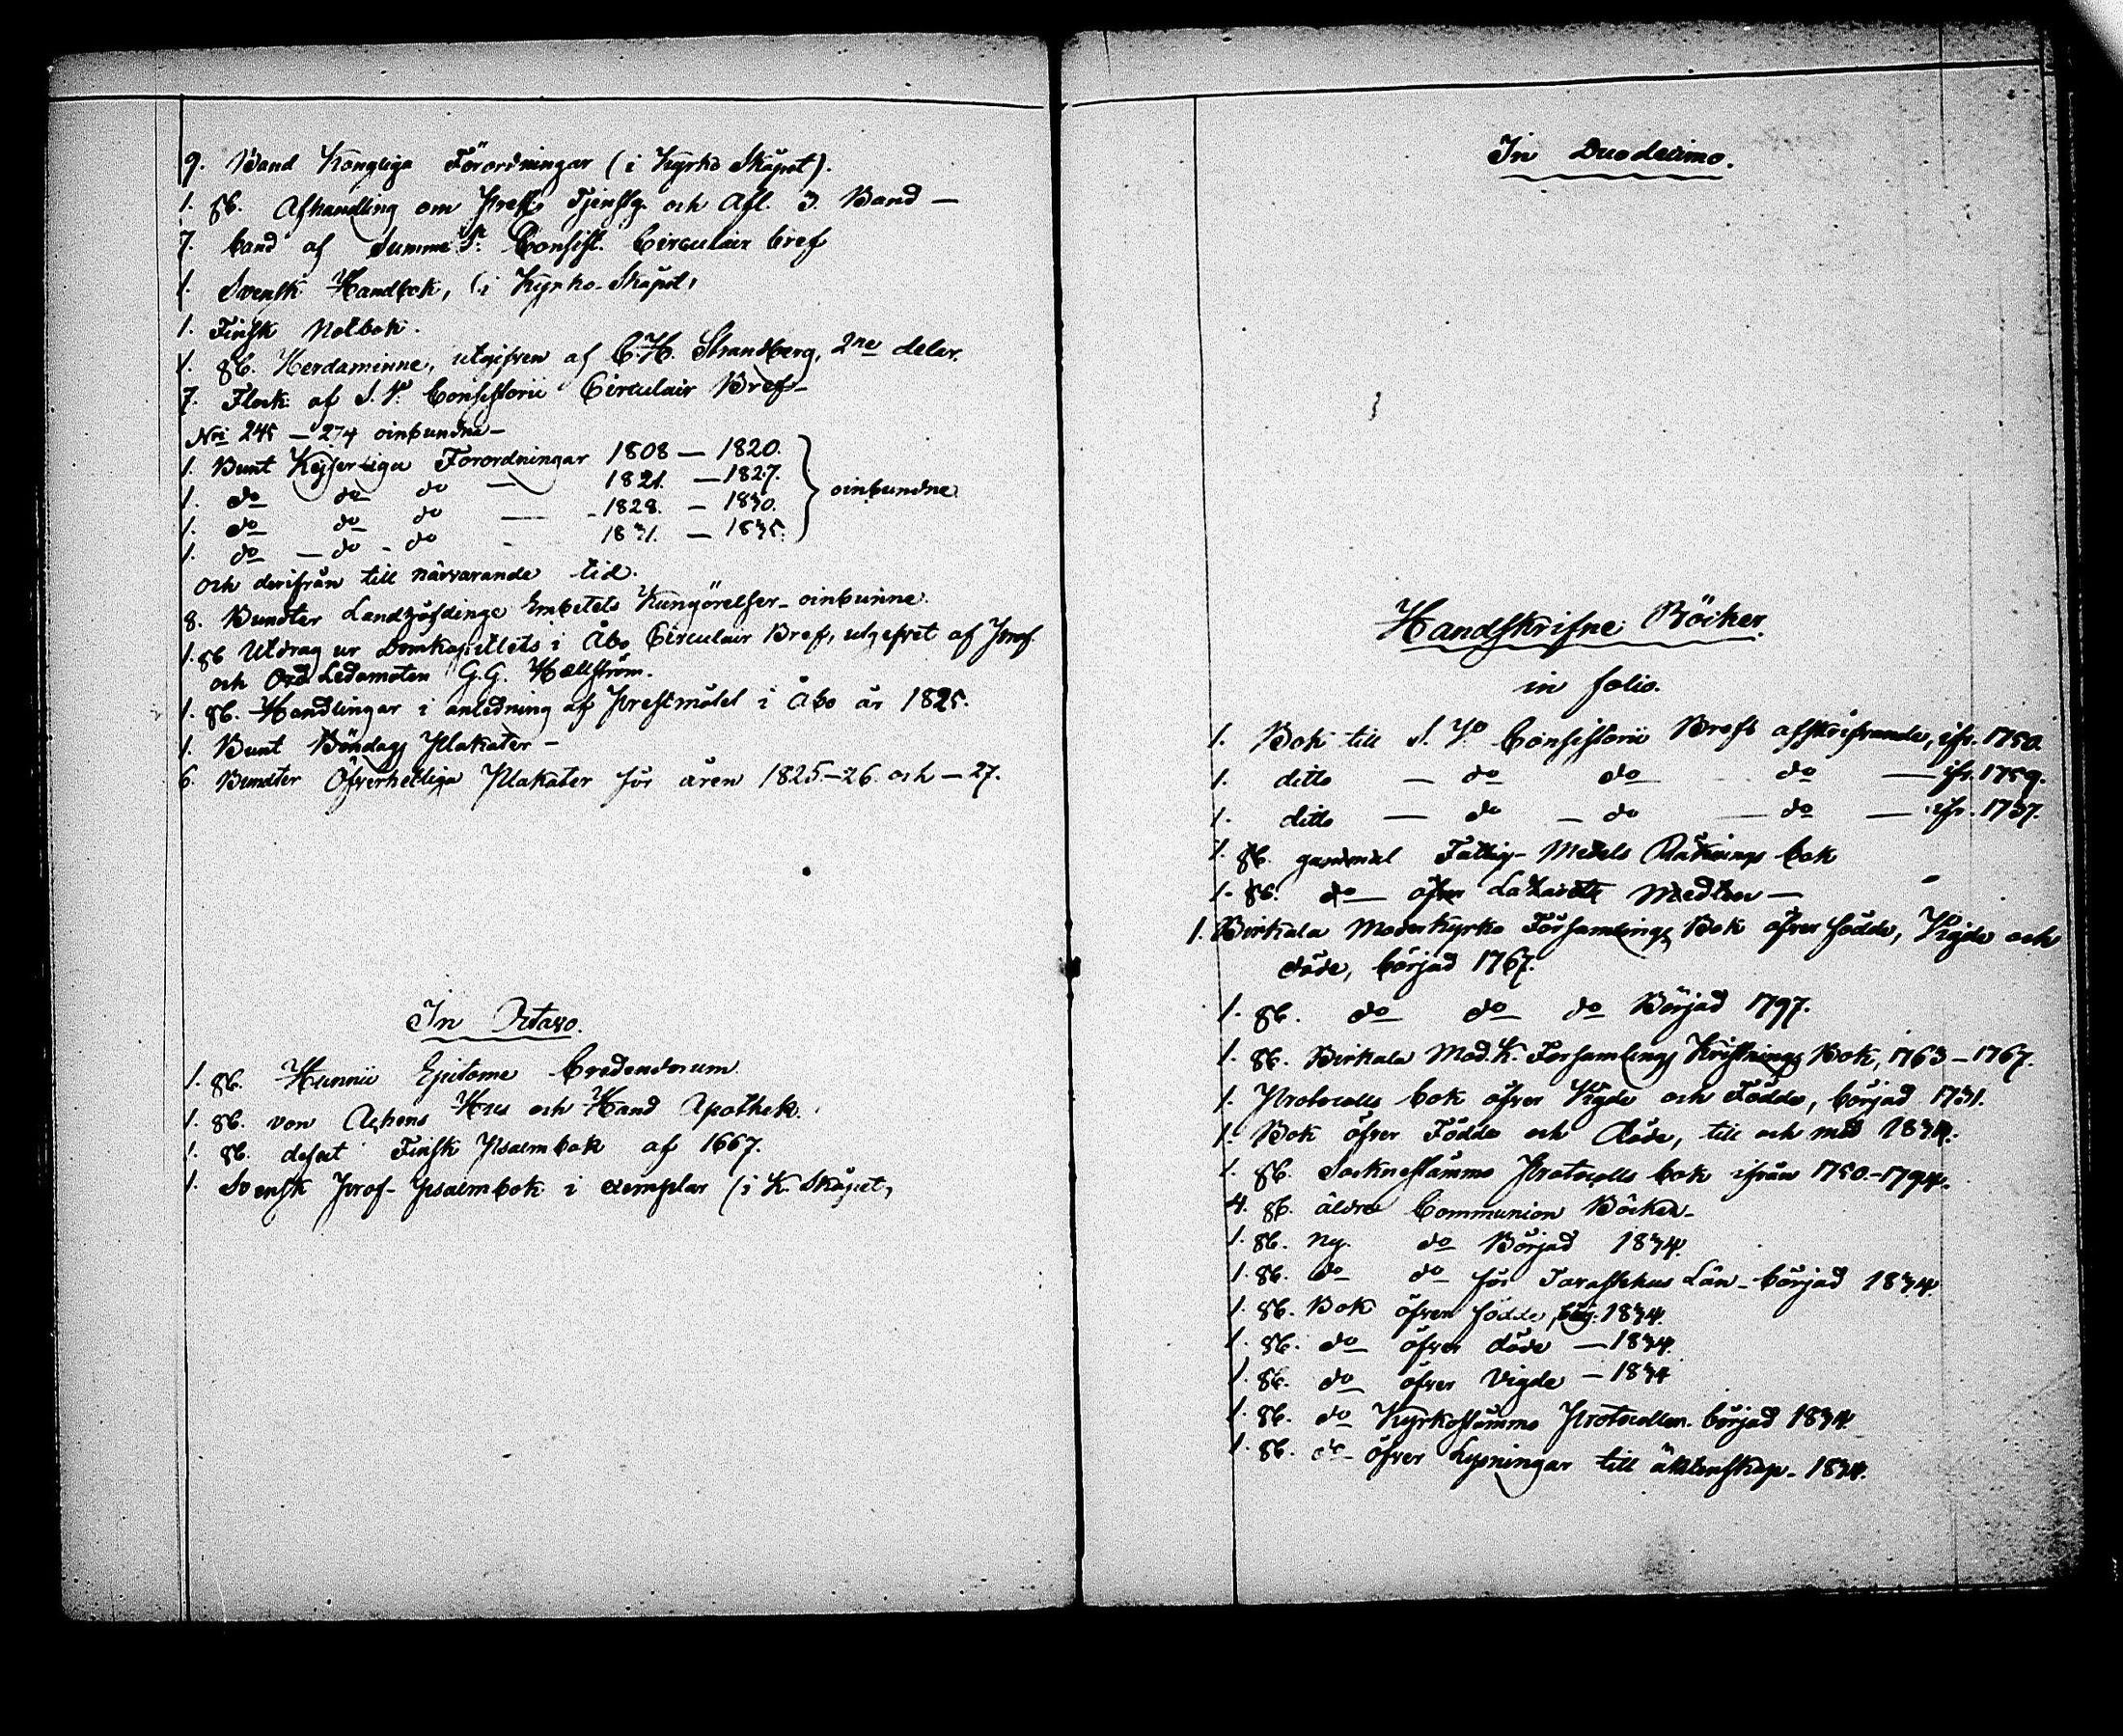 9. Band Kongliga Förordningar (i Kyrko Skåpet).
1. st. Afhandling om Prest. Tjenstg. och Afl. 3. Band —
7. band af Summe. V. Consist. Circulair bref
1. Svensk Handbok, (i Kyrko-Skåpet,
1. Finsk Notbok.
1. st. Herdaminne, utgifven af C.H. Strandberg, 2ne delar.
7. Flock. af S. V. Consistorii Circulair Bref—
Nri 245 — 274 oinbundna—
1. Bunt Kejserliga Förordningar 1808 — 1820.
1. do do do — 1821. — 1827.
1. do do do — 1828. — 1830. oinbundne
1. do — do - do - 1831. — 1835.
och derifrån till närvarande tid.
8. Bundter Landshöfdinge Embetets Kungörelser - oinbunne.
1. st Utdrag ur Domkapitlets i Åbo Circulair Bref, utgifvet af Prof.
och Ord Ledamoten G.G. Hällström.
1. st. Handlingar i anledning af Prestmötet i Åbo år 1825.
1. Bunt Böndags Plakater —
6. Bundter Öfverhetliga Plakater för åren 1825—26. och — 27.
In Octavo.
1. st. Hunnii Epitome Credendorum
1. st. von Achens Hus och Hand Apothek.
1. st. defect Finsk Psalmbok af 1667.
1. Svensk Prof-Psalmbok i exemplar (i K. Skåpet,
In Duodecimo.
Handskrifne Böcker.
in folio.
1. Bok till S. V. Consistorii Brefs afskrifvande, ifr. 1750.
1. ditto — do do do — ifr. 1759.
1. ditto — do — do — do — ifr. 1737.
1. st. gammal Fattig-Medels Räknings bok
1. st. do — öfver Lazaretts Medlen —
1. Birkala Moderkyrko Församlings Bok öfver födde, Vigde och
döde, börjad 1767.
1. st. do do do Börjad 1797.
1. st. Birkala Mod. K. Församlings Kristnings Bok, 1763 — 1767.
1. Protocolls bok öfver Vigde och Födde, börjad 1731.
1. Bok öfver Födde och Döde, till och med 1834.
1. st. Socknestämmo Protocolls bok ifrån 1750.—1794.
4. st. äldre Communion Böcker—
1. st. ny. do Börjad 1834.
1. st. do do för Tavastehus Län - börjad 1834.
1. st. Bok öfver födde, börj. 1834.
1. st. do öfver döde — 1834.
1. st. do öfver Vigde — 1834
1. st. do Kyrkostämmo Protocoller börjad 1834.
1. st. do öfver Lysningar till äktenskap - 1834.